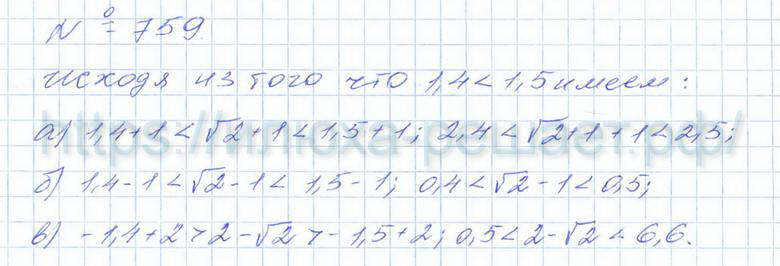 № 759.
исходя из того что 1,4 < 1,5 имеем:
а) 1,4+1 < √2+1 < 1,5+1; 2,4 < √2+1+1 < 2,5;
б) 1,4-1 < √2-1 < 1,5-1; 0,4 < √2-1 < 0,5;
в) -1,4+2 > 2-√2 > -1,5+2; 0,5 < 2-√2 < 6,6.